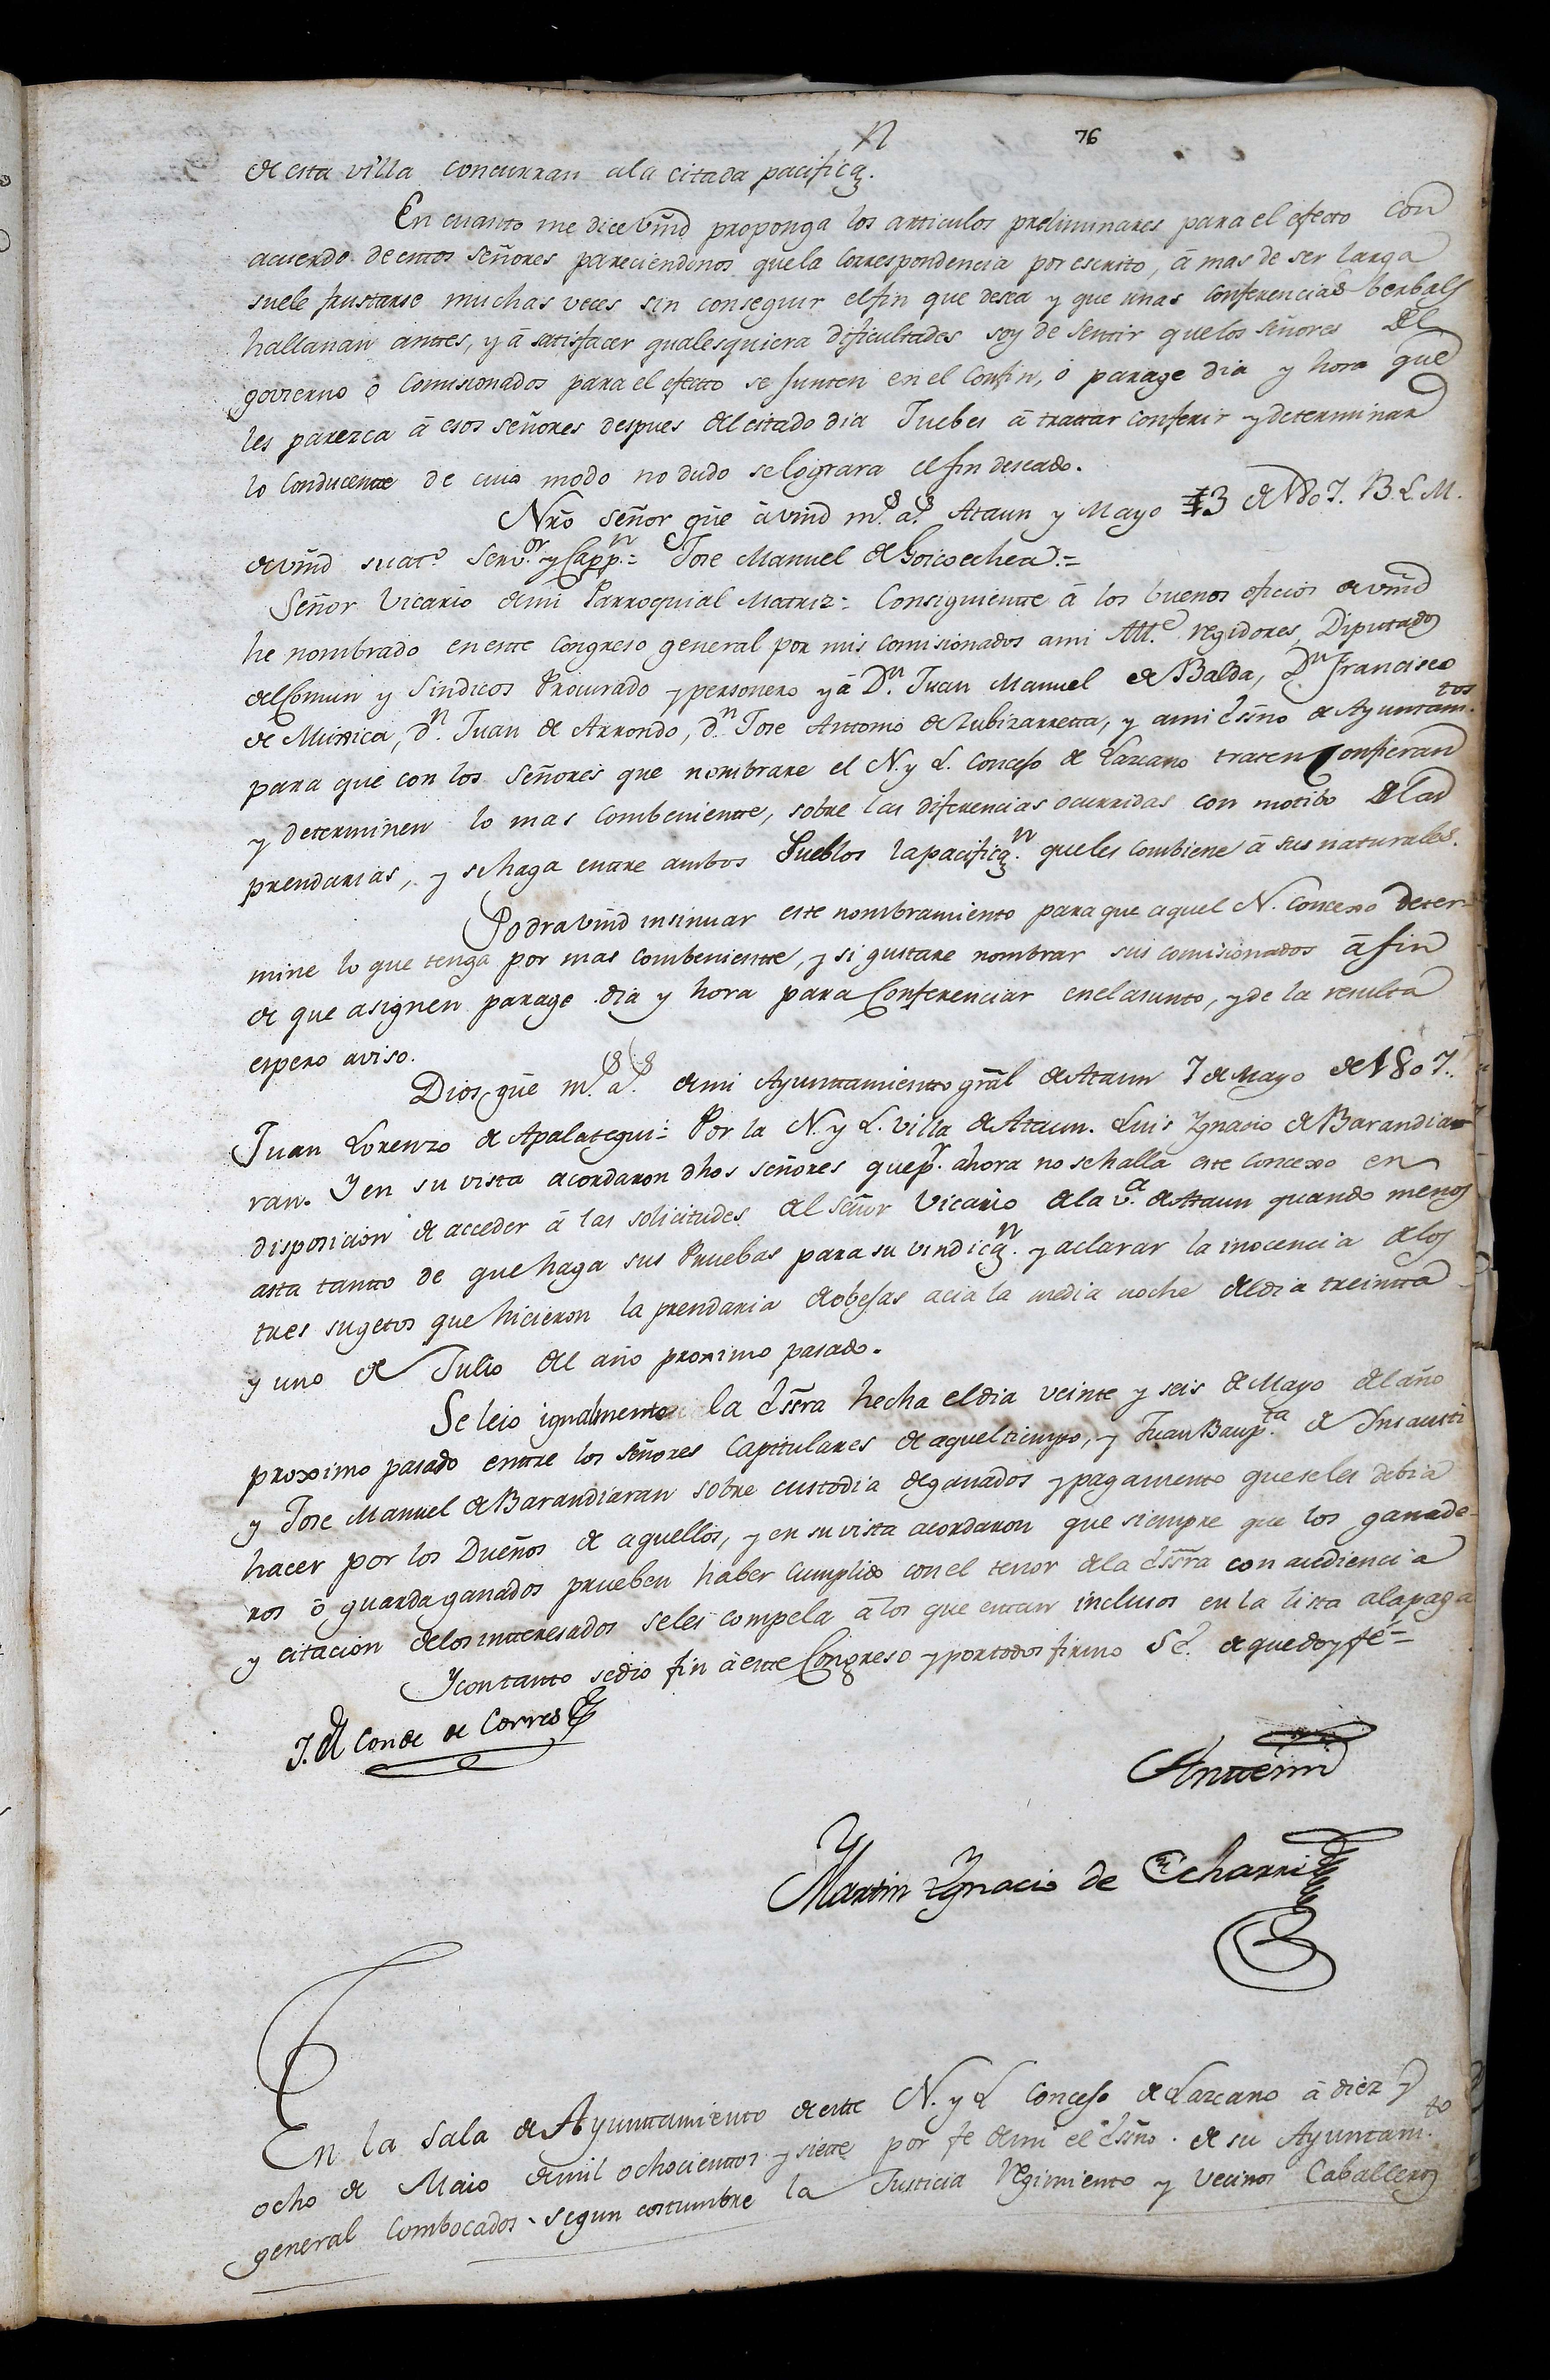 76
de esta villa concurran ala citada pacificaz.n
En cuanto me dice vmd proponga los articulos preliminares para el efecto con
acuerdo de esttos señores pareciendonos quela correspondencia por escrito, á mas de ser larga
suele frustarse muchas veces sin conseguir elfin que desea y que unas conferencias berbals
hallanan anttes, y á satisfacer qualesquiera dificultades soy de sentir quelos señores del
govierno ó comisionados para el efectto se junten en el confin, ó parage dia y hora que
les parezca á esos señores despues del citado dia Juebes á trattar conferir y determinar
lo conducentte de cuio modo no dudo selograra elfin deseado.
Nro señor gûe ávmd m.s a.s Ataun y Mayo 3 de 1807. B. L. M.
de vmd suat.o Serv.or y Capp.n = Jose Manuel de Goicoechea =
Señor Vicario demi Parroquial Matriz = Consiguientte á los buenos oficios de vmd
he nombrado en estte congreso general por mis comisionados ami All.e regidores, Diputados
del Comun y Sindicos Procurado y personero y á D.n Juan Manuel de Balda, D.n Francisco
de Munica, d.n Juan de Arrondo, d.n Jose Antonio de Zubizarretta, y ami Essno de Ayuntam.tos
para que con los señores que nombrare el N. y L. concejo de Lazcano traten Confieran
y determinen lo mas combenientte, sobre las diferencias ocurridas con motibo de las
prendarias, y sehaga enttre ambos Pueblos lapacificaz.n queles combiene á sus naturales.
Podra vmd insinuar este nombramiento para que aquel N. Concexo deter-
mine lo que tenga por mas combenientte, y si gustare nombrar sus comisionados á fin
de que asignen parage dia y hora para Conferenciar enel asunto, y de la resulta
espero aviso.
Dios gûe m.s a.s demi Ayunttamientto gral de Ataun 7 de Mayo de 1807.
Juan Lorenzo de Apalategui = Por la N. y L. villa de Ataun. Luis Ygnacio de Barandia-
ran. Y en su vista acordaron dhos señores quep.r ahora no sehalla este concexo en
disposicion de acceder á las solicitudes del señor Vicario dela v.a de Ataun quando menos
asta tantto de que haga sus Pruebas para su vindicaz.n y aclarar la inocencia delos
tres sugetos que hicieron la prendaria de obejas acia la media noche del dia treintta
y uno de Julio del año proximo pasado.
Se leio igualmente la Essra hecha eldia veinte y seis de Mayo del año
proximo pasado enttre los señores Capitulares de aquel tiempo, y Juan Baup.ta de Insausti
y Jose Manuel de Barandiaran sobre custodia de ganados y pagamento queseles debia
hacer por los Dueños de aquellos, y en su vista acordaron que siempre que los ganade-
ros ó guarda ganados prueben haber Cumplido con el tenor dela Essra con audiencia
y citacion delos intteresados seles compela á los que esttan inclusos en la lista alapaga
Y con tanto sedio fin á estte Congreso y por todos firmo Se. de que doy fe =
J. El Conde de Corres
Anttemi
Martin Ygnacio de Echarri
En la Sala de Ayunttamiento de estte N. y L concejo de Lazcano á diez y
ocho de Maio de mil ochocienttos y siette por fe demi el Essno. de su Ayuntam.to
general Combocados segun costumbre la Justicia Regimiento y Vecinos Caballeros